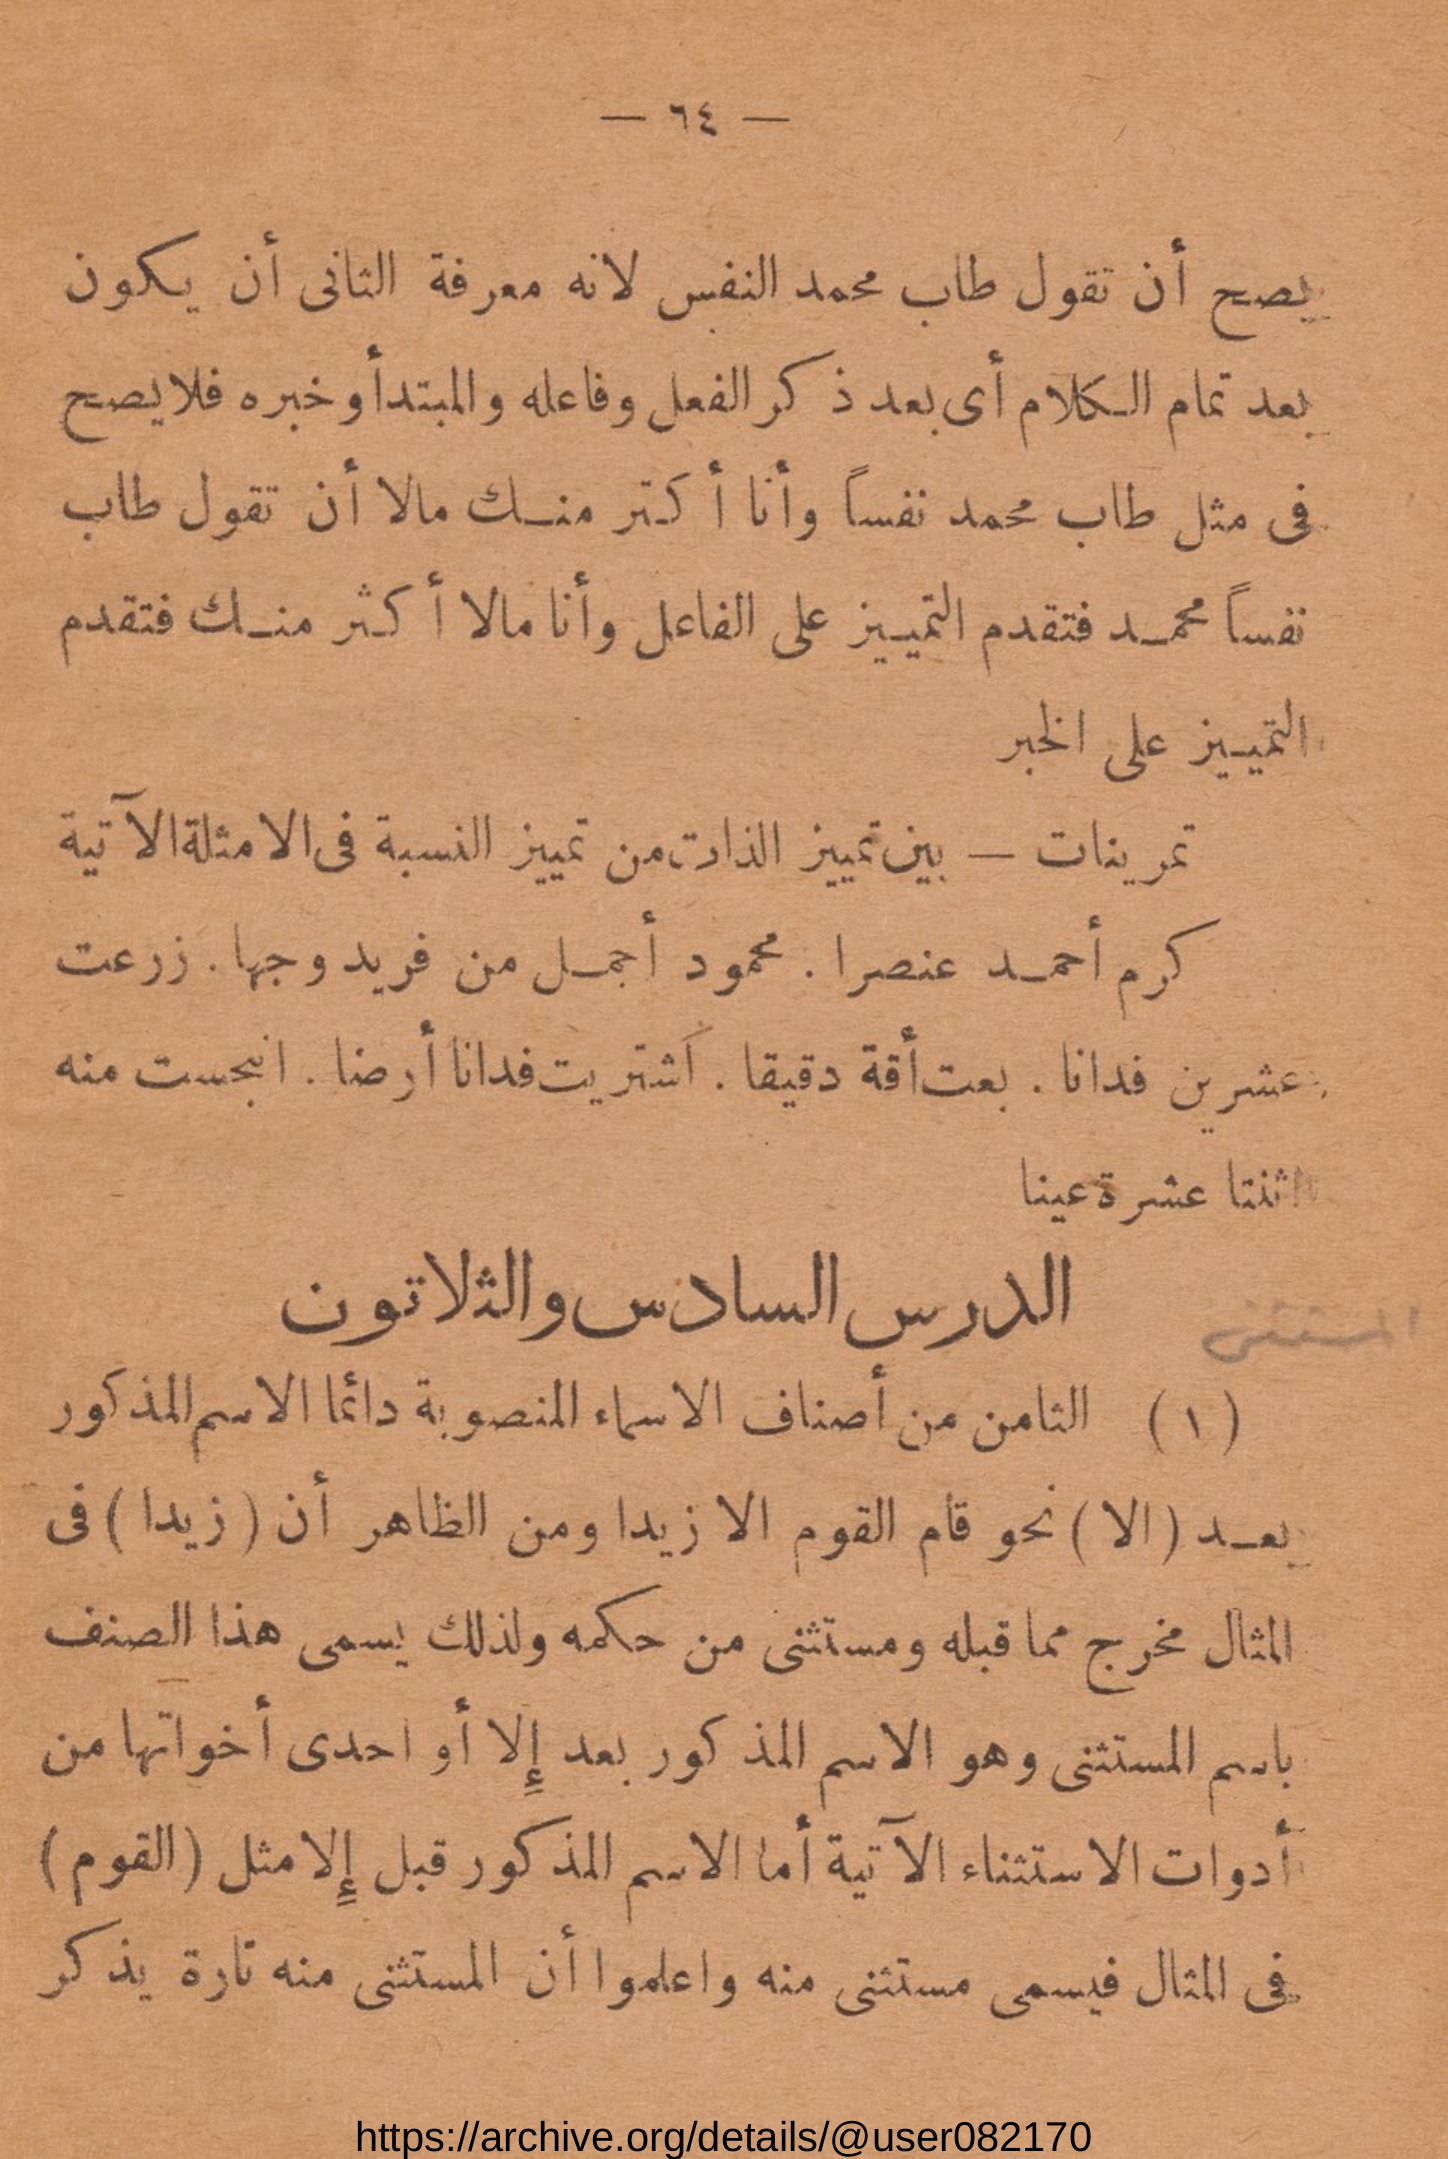 — ٦٤ —
يصح أن تقول طاب محمد النفس لانه معرفة الثانى أن يكون
بعد تمام الكلام أى بعد ذكر الفعل وفاعله والمبتدأ وخبره فلا يصح
فى مثل طاب محمد نفساً وأنا أكثر منك مالا أن تقول طاب
نفساً محمد فتقدم التمييز على الفاعل وأنا مالا أكثر منك فتقدم
التمييز على الخبر
تمرينات — بين تمييز الذات من تمييز النسبة فى الامثلة الآتية
كرم أحمد عنصرا . محمود أجمل من فريد وجها . زرعت
عشرين فدانا . بعت أقة دقيقا . اشتريت فدانا أرضا . انبجست منه
اثنتا عشرة عينا
الدرس السادس والثلاثون
المستثنى
(١) الثامن من أصناف الاسماء المنصوبة دائما الاسم المذكور
بعد (الا) نحو قام القوم الا زيدا ومن الظاهر أن (زيدا) فى
المثال مخرج مما قبله ومستثنى من حكمه ولذلك يسمى هذا الصنف
باسم المستثنى وهو الاسم المذكور بعد إلا أو احدى أخواتها من
أدوات الاستثناء الآتية أما الاسم المذكور قبل إلا مثل (القوم)
فى المثال فيسمى مستثنى منه واعلموا أن المستثنى منه تارة يذكر
https://archive.org/details/@user082170